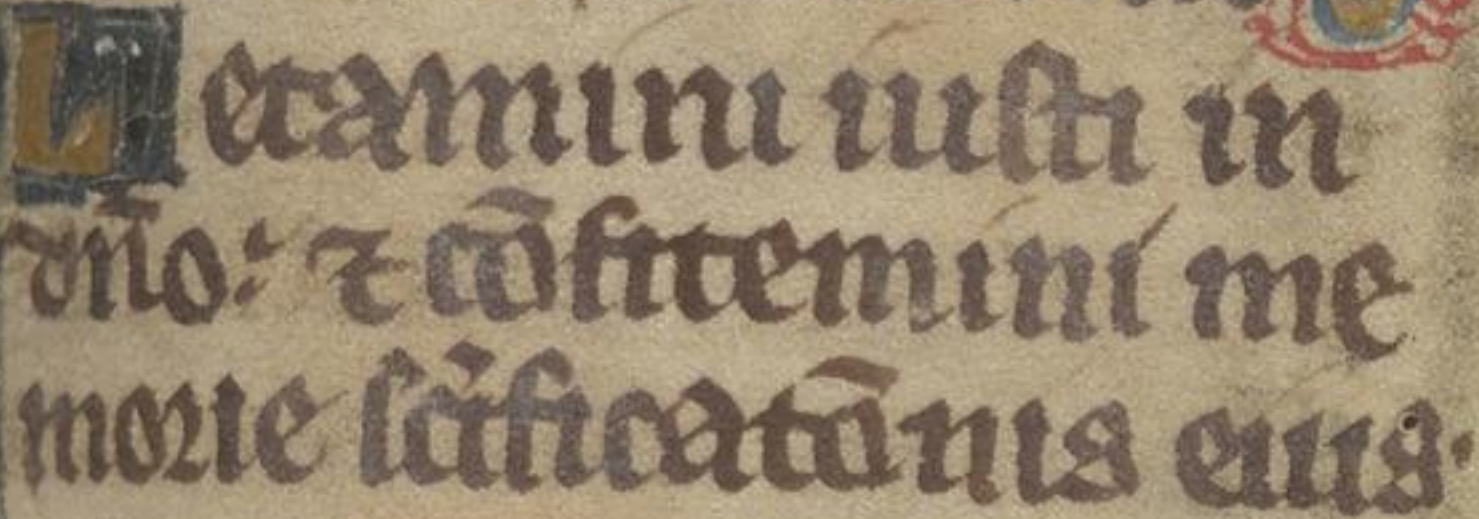 Letamini iusti in
dn̄o: ⁊ cōfitemini me
morie sc̄ificatōnis eius.